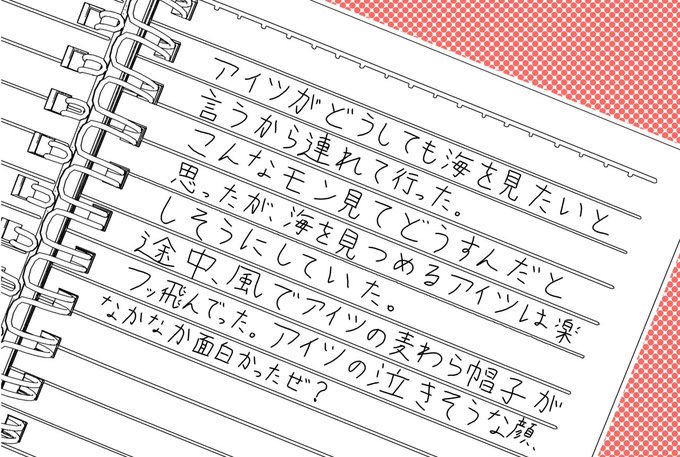 アイツがどうしても海を見たいと
言うから連れて行った。
こんなモン見てどうすんだと
思ったが、海を見つめるアイツは楽
しそうにしていた。
途中、風でアイツの麦わら帽子が
フッ飛んでった。アイツの泣きそうな顔、
なかなか面白かったぜ?